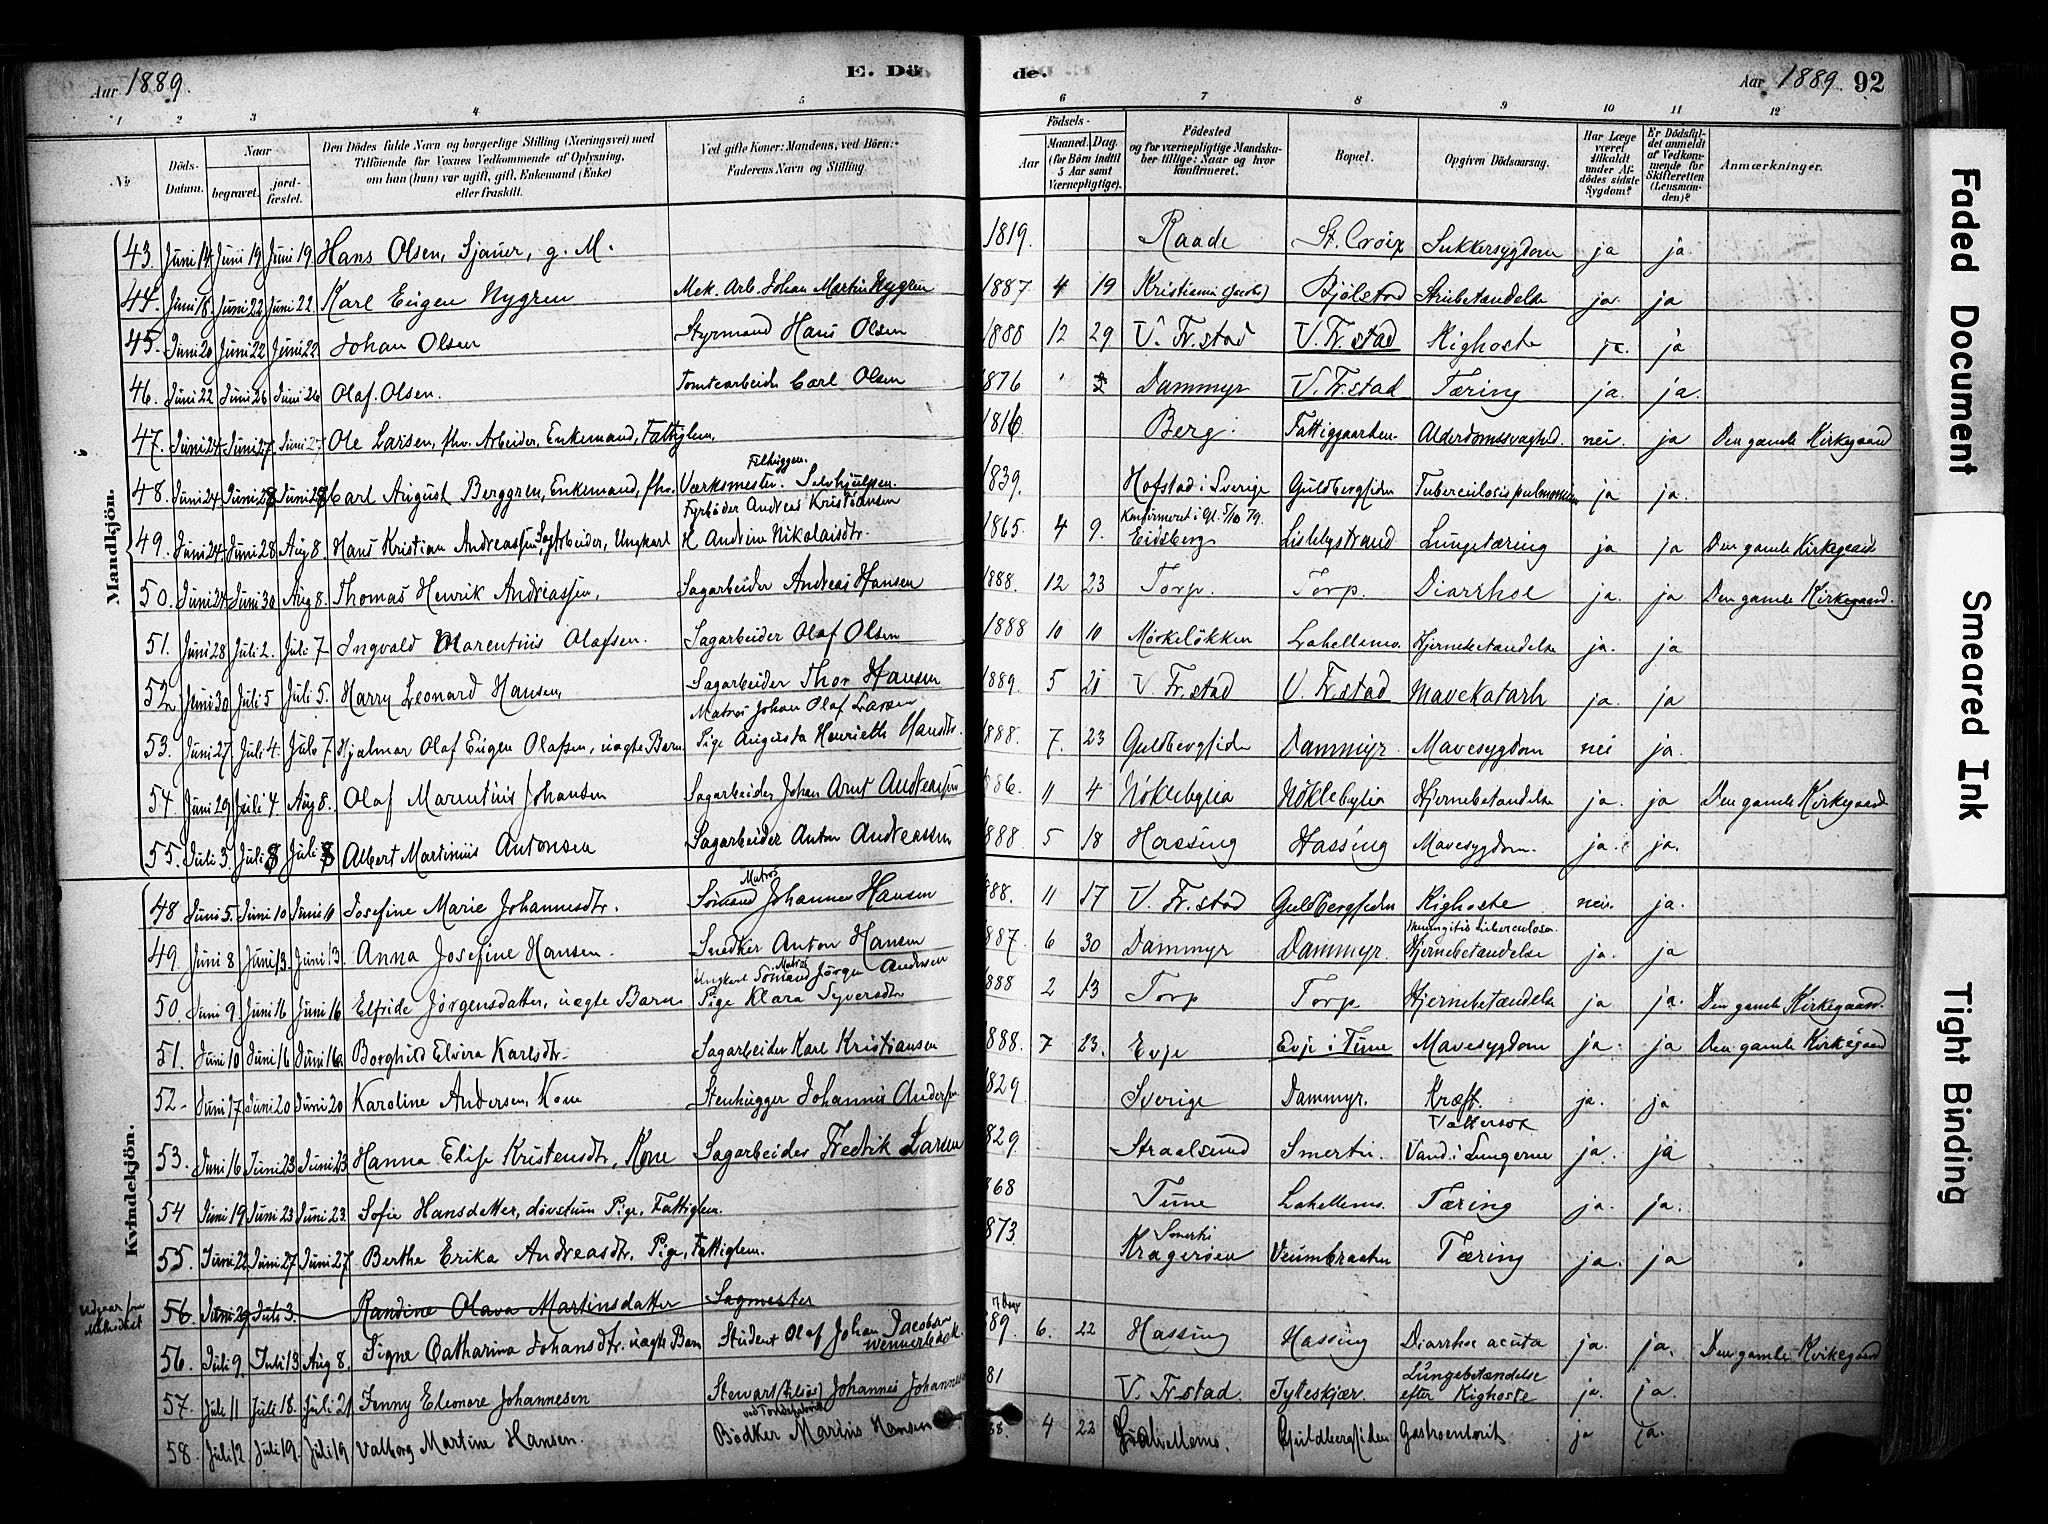 Aar 1889. E. Dö
de. Aar 1889 92
1 2 3 4 5 6 7 8 9 10 11 12
No Döds-Datum. Naar begravet. jordfæstet. Den Dödes fulde Navn og borgerlige Stilling (Næringsvei) med Tilföiende for Voxnes Vedkommende af Oplysning, om han (hun) var ugift, gift, Enkemand (Enke) eller fraskilt. Ved gifte Koner: Mandens, ved Börn: Faderens Navn og Stilling. Födsels- Aar Maaned. Dag. (for Börn indtil 5 Aar samt Værnepligtige). Födested og for værnepligtige Mandskaber tillige: Naar og hvor konfirmeret. Bopæl. Opgiven Dödsaarsag. Har Læge været tilkaldt under Afdödes sidste Sygdom? Er Dödsfaldet anmeldt af Vedkommende for Skifteretten (Lensmanden)? Anmærkninger.
Mandkjön.
43. Juni 14 Juni 19 Juni 19. Hans Olsen, Sjauer, g. M. 1819. Raade St. Croix Sukkersygdom ja ja.
44. Juni 18. Juni 22 Juni 22. Karl Eugen Nygren Mek. Arb. Johan Martin Nygren 1887 4 19 Kristiania (Jacobs) Bjölstad Strubetændelse ja. ja
45. Juni 20 Juni 22 Juni 22. Johan Olsen Styrmand Hans Olsen 1888 12 29 V. Fr.stad V. Fr.stad Kighoste ja. ja
46. Juni 22 Juni 26 Juni 26 Olaf Olsen. Tomtearbeider Carl Olsen 1876 Dammyr V. Fr.stad Tæring ja. ja.
47. Juni 24 Juni 27. Juni 27 Ole Larsen, fhv. Arbeider, Enkemand, Fattiglem. 1816 Berg. Fattiggaarden. Alderdomssvaghed. nei. ja Den gamle Kirkegaard
48. Juni 24 Juni 28 Juni 28 Carl August Berggren, Enkemand, fhv. Filhugger. Værksmester. Selvhjulpen. 1839. Hofstad i Sverige Guldbergsiden Tuberculosis pulmonum ja ja.
49. Juni 24 Juni 28 Aug 8. Hans Kristian Andreassen, Sagarbeider, Ungkarl Fyrböder Andreas Kristiansen H Andrine Nikolaisdtr. 1865 4 9. Konfirmeret i Gl. 5/10 79. Eidsberg Lislebystrand Lungetæring ja ja Den gamle Kirkegaard
50. Juni 24 Juni 30 Aug 8. Thomas Henrik Andreassen, Sagarbeider Andreas Hansen 1888. 12 23 Torp. Torp. Diarrhoe ja. ja Den gamle Kirkegaard.
51. Juni 28 Juli 2. Juli 7 Ingvald Marentius Olafsen. Sagarbeider Olaf Olsen 1888 10 10 Mörkelökken Lahellemo. Hjernebetændelse ja. ja
52 Juni 30 Juli 5 Juli 5. Harry Leonard Hansen, Sagarbeider Thor Hansen 1889. 5 21 V Fr.stad V. Fr.stad Mavekatarh ja. ja
53. Juni 27 Juli 4. Juli 7 Hjalmar Olaf Eugen Olafsen, uægte Barn Matros Johan Olaf Larsen Pige Augusta Henriette Hansdtr. 1888. 7. 23 Guldbergsiden Dammyr. Mavesygdom nei ja.
54. Juni 29 Juli 4 Aug 8. Olaf Marentius Johansen Sagarbeider Johan Arnt Andreassen 886. 11 4 Nöklebylia Nöklebylia Hjernebetændelse ja. ja Den gamle Kirkegaard
55. Juli 3. Juli 8 Juli 8 Albert Martinius Antonsen Sagarbeider Anton Andreassen 888 5 18 Hassing Hassing Mavesygdom. ja. ja.
Kvindekjön.
48 Juni 5. Juni 10 Juni 11 Josefine Marie Johannesdtr. Matros Sömand Johannes Hansen 888. 11 17 V. Fr.stad Guldbergsiden Kighoste nei. ja.
49. Juni 8 Juni 13. Juni 13. Anna Josefine Hansen. Snedker Anton Hansen 887. 6 30 Dammyr Dammyr. Meningitis tuberculosa. Hjernebetændelse ja. ja
50. Juni 9. Juni 16 Juni 16 Elfride Jörgensdatter, uægte Barn Ungkarl Sömand Matros Jörgen Andersen Pige Klara Syversdtr 888 2 13 Torp Torp Hjernebetændelse ja ja. Den gamle Kirkegaard.
51. Juni 10 Juni 16 Juni 16. Borghild Elvira Karlsdtr. Sagarbeider Karl Kristiansen 888. 7 23. Evje Evje i Tune Mavesygdom ja. ja Den gamle Kirkegaard
52 Juni 17 Juni 20 Juni 20 Karoline Andersen, Kone Stenhugger Johannes Andersen 829 Sverige Dammyr. Kræft. ja. ja
53. Juni 16 Juni 23 Juni 23 Hanna Elise Kristensdtr, Kone Sagarbeider Fredrik Larsen 829 Straalsund Smertu. Vattersot Vand i Lungerne ja. ja
54 Juni 19 Juni 23 Juni 23. Sofie Hansdatter, dövstum Pige, Fattiglem. 868 Tune Lahellemo. Tæring ja. ja.
55. Juni 22 Juni 27 Juni 27 Berthe Erika Andreasdtr. Pige, Fattiglem. 873. Smertu Krageröen Veumbraaten Tæring ja. ja
Udgaar for Methodist 56 Juni 29 Juli 3. Randine Olava Martinsdatter Sagmester
56. Juli 9. Juli 13 Aug 8. Signe Catharina Johansdtr. uægte Barn Student Olaf Johan Jacobsen Wennerbeck. 17 Dage 889. 6. 22 Hassing Hassing Diarrhoe acuta ja. ja. Den gamle Kirkegaard
57. Juli 11 Juli 18. Juli 21 Jenny Eleonore Johannesen Stewart Johannes Johannesen 81 V. Fr.stad Tyteskjær. Lungebetændelse efter Kighoste ja. ja.
58. Juli 12. Juli 19. Juli 19 Valborg Martine Hansen. ved Töndefabrik Bödker Marius Hansen 88. 4 22 Guldbergsiden Gastroenterit ja ja.
Faded Document
Smeared Ink
Tight Binding